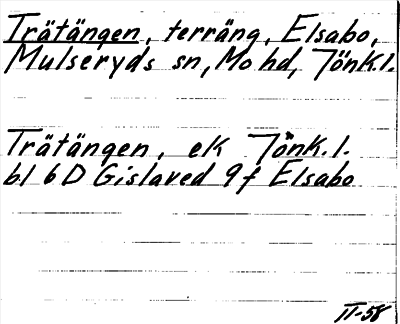 Trätängen, terräng, Elsabo,
Mulseryds sn, Mo hd, Jönk. l.
Trätängen, ek Jönk. l.
bl 6D Gislaved 9f Elsabo
II-58